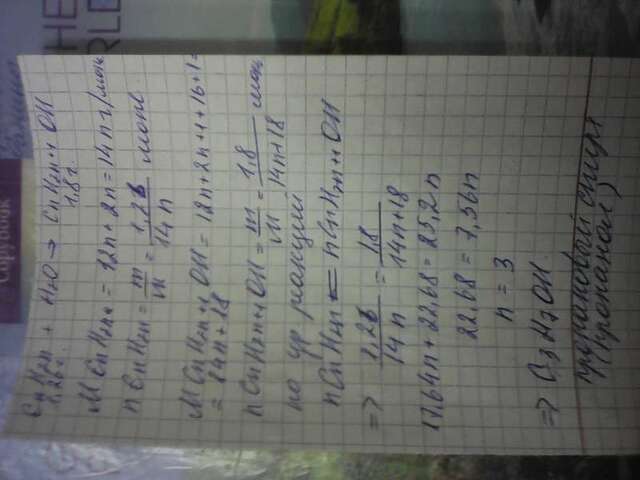 CnH2n + H2O → CnH2n+1 OH
1,26г. 1.8г.
M CnH2n = 12n + 2n = 14n г/моль
n CnH2n = m/M = 1,26/14n моль
M CnH2n+1 OH = 12n + 2n + 1 + 16 + 1 =
= 14n + 18
n CnH2n+1 OH = m/M = 1.8/14n+18 моль
по ур реакции
n CnH2n = n CnH2n+1 OH
=> 1,26/14n = 1,8/14n+18
17,64n + 22,68 = 25,2n
22,68 = 7,56n
n = 3
=> C3H7OH.
(пропанол)
Copybook
THE
WORLD